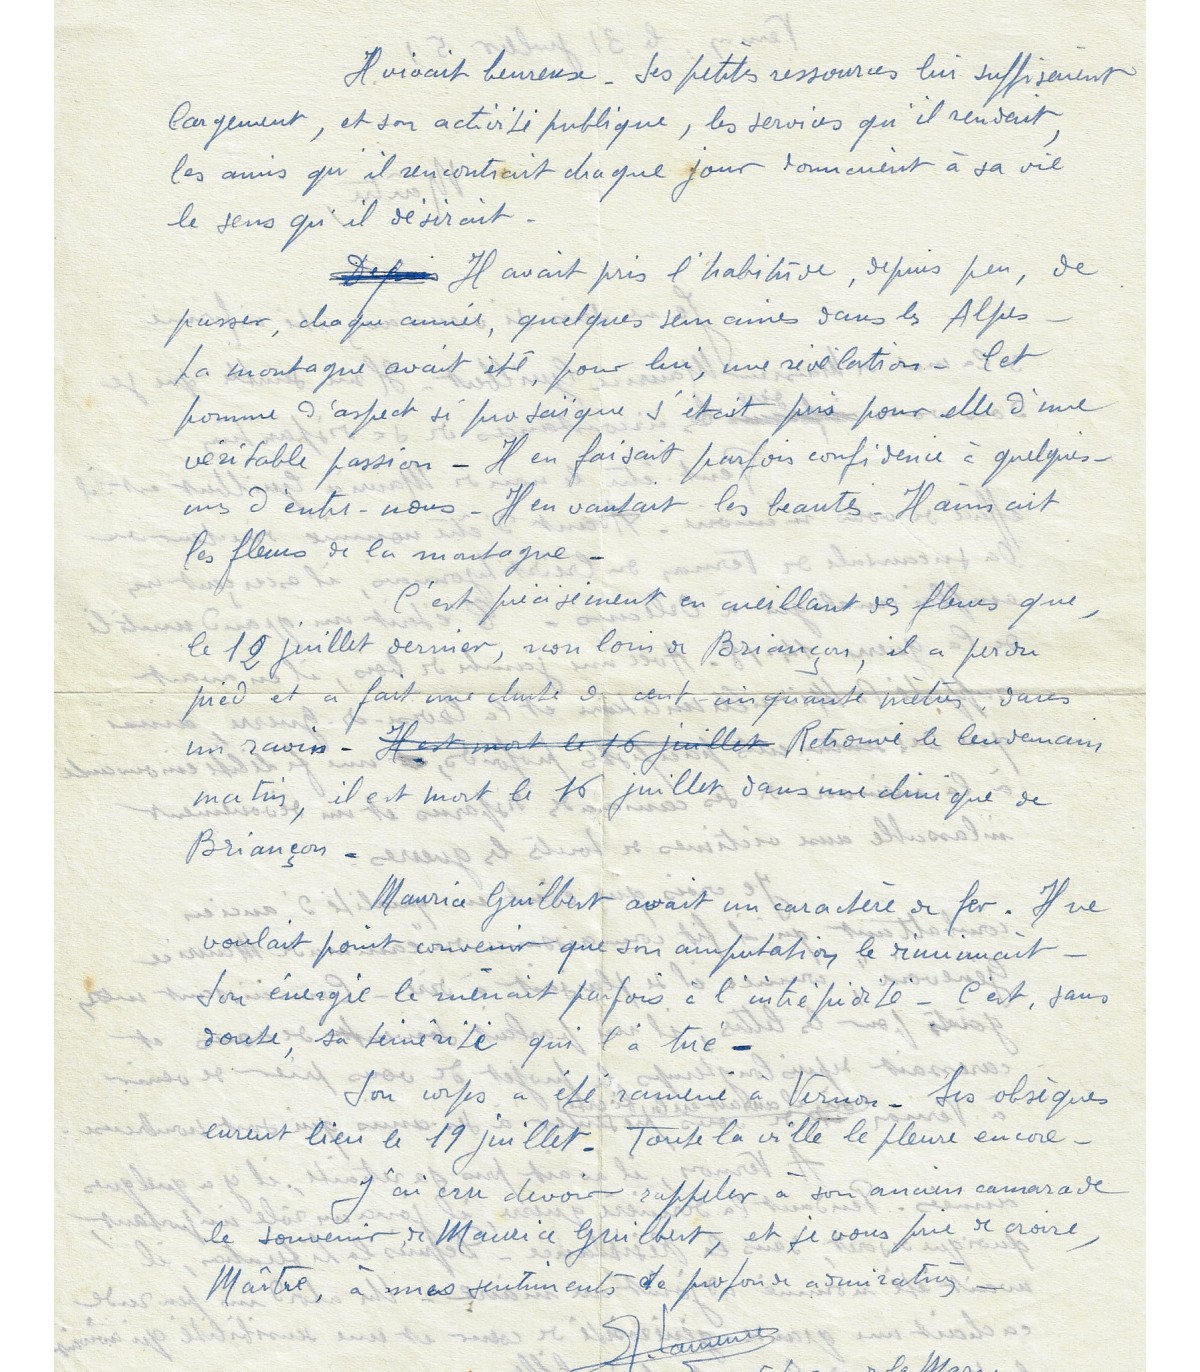 Il vivait heureux - Ses petites ressources lui suffisaient
largement, et son activité publique, les services qu'il rendait,
les amis qu'il rencontrait chaque jour donnaient à sa vie
le sens qu'il désirait -
Depuis Il avait pris l'habitude, depuis peu, de
passer, chaque année, quelques semaines dans les Alpes -
La montagne avait été, pour lui, une révélation - Cet
homme d'aspect si prosaïque s'était pris pour elle d'une
véritable passion - Il en faisait parfois confidence à quelques-
uns d'entre-nous - Il en vantait les beautés - Il aimait
les fleurs de la montagne -
C'est précisément en cueillant des fleurs que,
le 12 juillet dernier, non loin de Briançon, il a perdu
pied et a fait une chute de cent cinquante mètres, dans
un ravin - Il est mort le 16 juillet Retrouvé le lendemain
matin, il est mort le 16 juillet dans une clinique de
Briançon -
Maurice Guilbert avait un caractère de fer. Il ne
voulait point convenir que son amputation le diminuait -
Son énergie le menait parfois à l'intrépidité - C'est, sans
doute, sa témérité qui l'a tué -
Son corps a été ramené à Vernon - Ses obsèques
eurent lieu le 19 juillet. Toute la ville le pleure encore -
J'ai cru devoir rappeler à son ancien camarade
le souvenir de Maurice Guilbert, et je vous prie de croire,
Maître, à mes sentiments de profonde admiration -